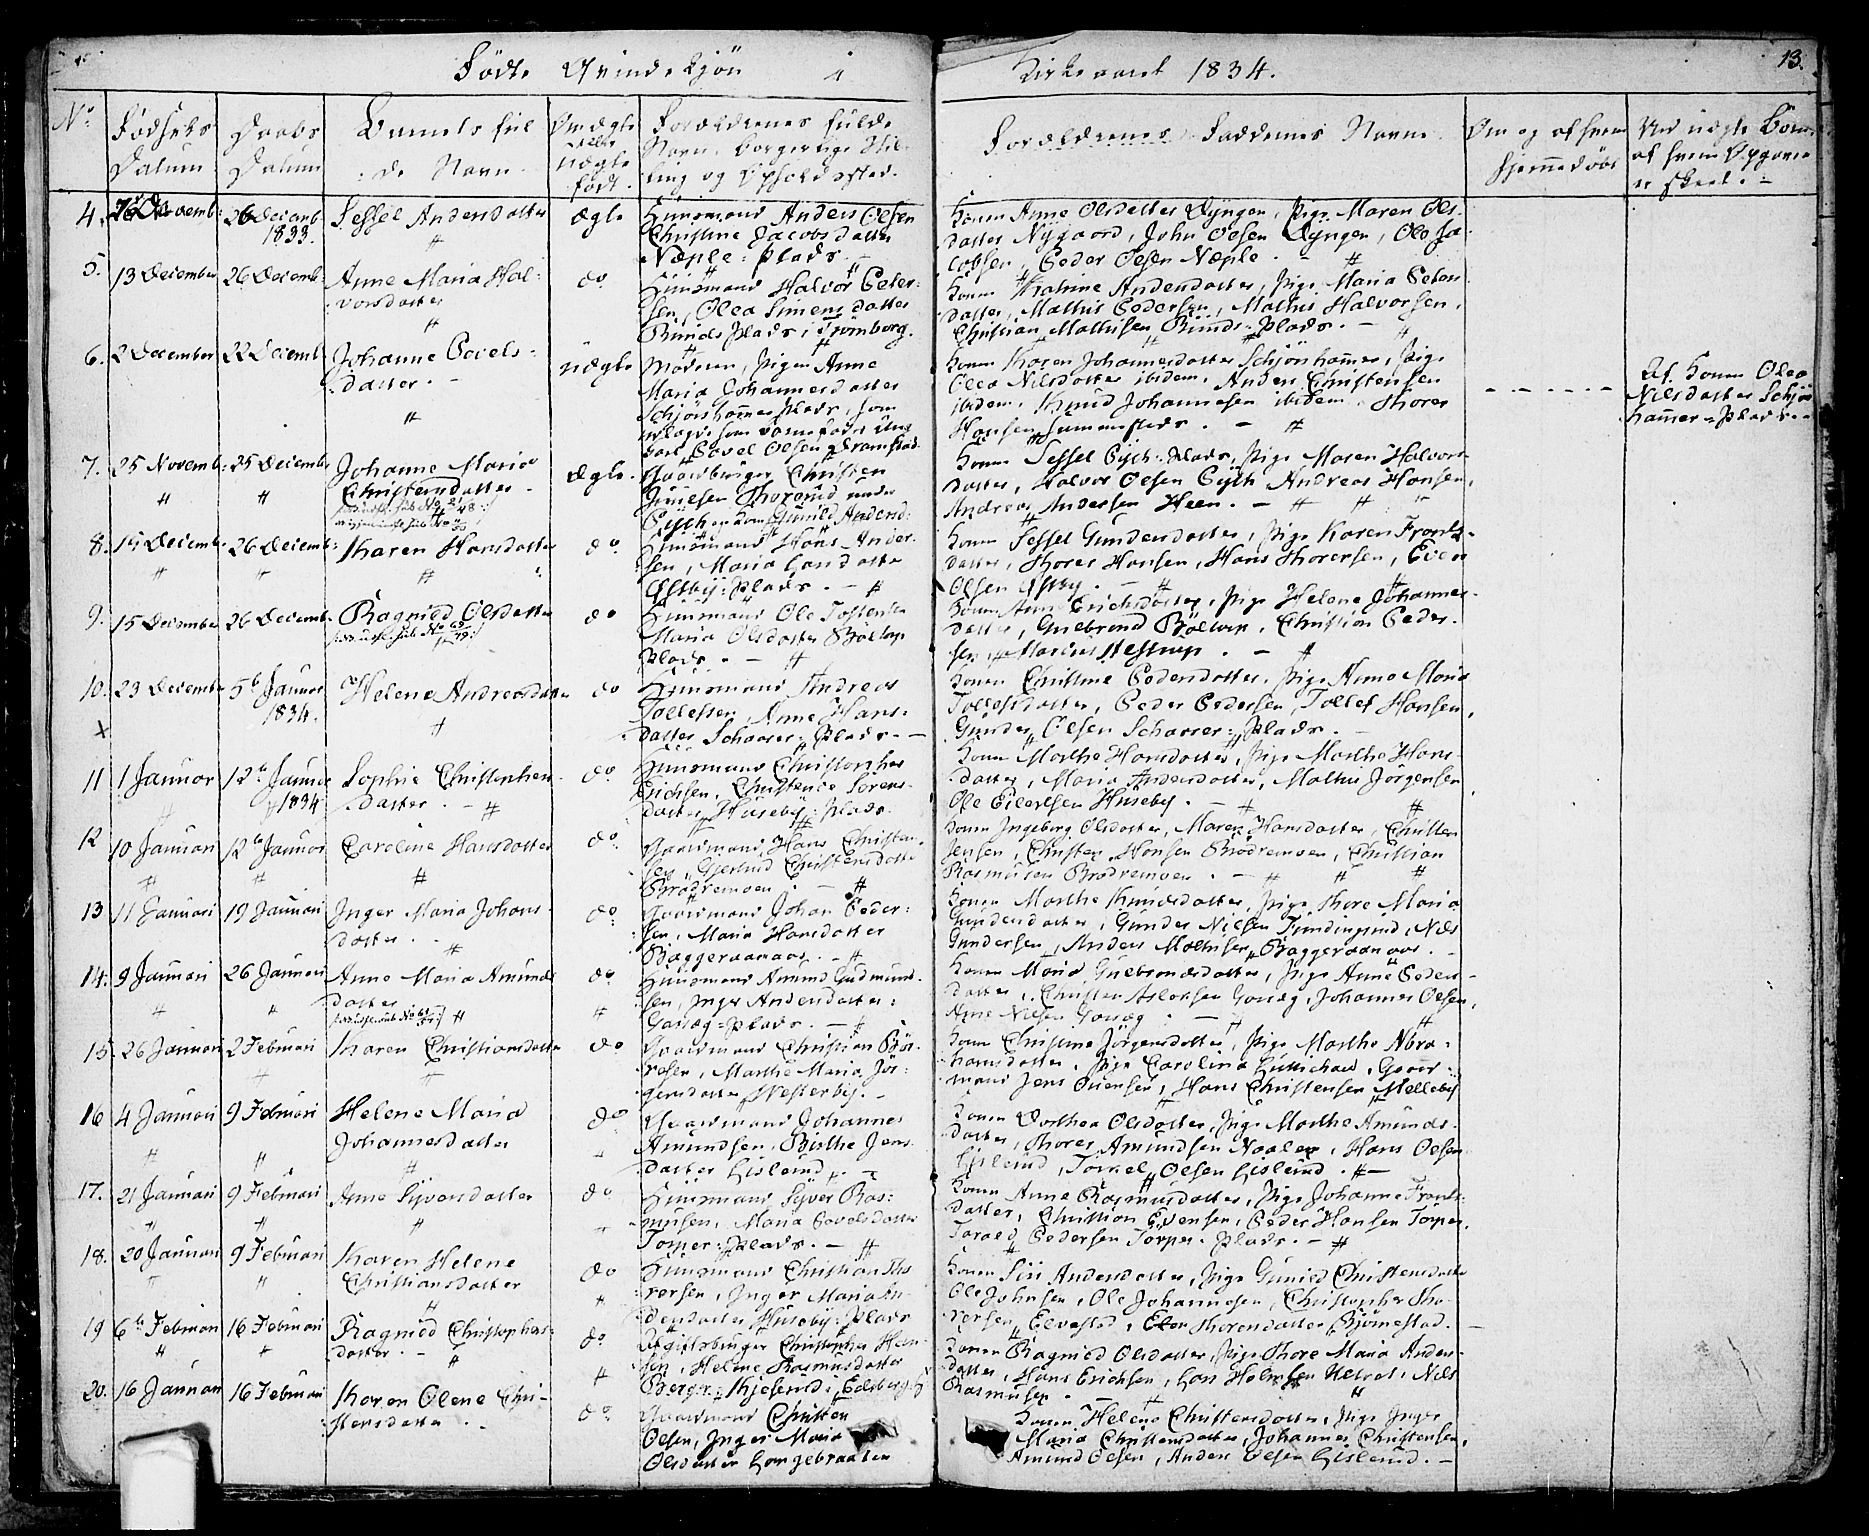 Fødte Qvindekjön i Kirkeaaret 1834.
13.
No
Födsels Datum
Daabs Datum
Barnets fulde Navn
Om ægte eller uægte født.
Forældrenes fulde Navn, borgerlige Stilling og Opholdssted.
Forældrenes Faddernes Navne
Om og af hvem hjemmedöbt
Ved uægte Börn af hvem Opgaven er skeet.
4. Novemb: 26 Decemb 1833. Sessel Andersdatter ægte
Huusmand Anders Olsen
Christine Jacobsdatter
Næple-Plads.
Konen Anne Olsdatter Dyngen, Pige Maren Ols-
datter Nygaard, John Olsen Dyngen, Ole Ja-
cobsen, Peder Olsen Næple.
5. 13 December 26 Decemb: Anne Maria Hal-
vorsdatter do
Huusmand Halvor Peter-
sen, Olea Simensdatter
Runds Plads, i Trömborg.
Konen Kathrine Andersdatter, Pige Maria Peters-
datter, Mathis Pedersen, Mathis Halvorsen,
Christian Mathisen Runds-Plads.
6. 2 December 22 Decemb Johanne Povels-
datter. uægte
Moderen, Pigen Anne
Maria Johannesdatter
Schjönhammer Plads, som
udlagde som Barnefader Ung-
karl Povel Olsen Dramstad
Konen Karen Johannesdatter Schjönhammer, Pige
Olea Nilsdatter ibidem. Anders Christensen
ibidem. Knud Johannesen ibidem. Thorer
Hansen Sammesteds.
Af Konen Olea
Nilsdatter Schjön-
hammer-Plads.
7. 25 Novemb: 25 Decembr Johanne Maria
Christensdatter ægte.
Gaardbruger Christen
Juelsen Thorerud under
Eych og Kone Gunild Andersd:
Konen Sessel Eych-Plads, Pige Maren Halvors-
datter, Halvor Olsen Eych Andreas Hansen,
Andreas Andersen Heen.
8. 14 Decemb: 26 Decemb: Karen Hansdatter do
Huusmand Hans Ander-
sen, Maria Larsdatter
Østby-Plads.
Konen Sessel Gundersdatter, Pige Karen Frants-
datter, Thorer Hansen, Hans Thorersen, Even
Olsen Østby.
9. 15 December 26 Decemb. Ragnild Olsdatter do
Huusmand Ole Tostensen
Maria Olsdatter Böltop
Plads.
Konen Anne Erichsdatter, Pige Helene Johannes-
datter, Gulbrand Böltop, Christian Peder-
sen, Marius Nestrup.
10. 23 Decemb 5te Januar 1834. Helene Andreasdatter do
Huusmand Andreas
Tollefsen, Anne Hans-
datter Schaarer-Plads.
Konen Christine Pedersdatter, Pige Anne Maria
Tollefsdatter, Peder Pedersen, Tollef Hansen,
Gunder Olsen Schaarer-Plads.
11 1 Januar 12te Januar 1834 Sophie Christopher-
datter do
Huusmand Christopher
Erichsen, Christence Sörens-
datter Huseby-Plads.
Konen Marthe Hansdatter, Pige Marthe Hans-
datter, Maria Andersdatter, Mathis Jörgensen
Ole Eilertsen Huseby.
12 10 Januari 12te Januar Caroline Hansdatter do.
Gaardmand Hans Christen-
sen, Gjertrud Christensdatter
Brödremoen.
Konen Ingeborg Olsdatter, Maren Hansdatter, Christen
Jensen, Christen Hansen Brödremoen, Christian
Rasmusen Brödremoen.
13 11 Januari 19 Januari Inger Maria Johans-
datter do.
Gaardmand Johan Peder-
sen, Maria Hansdatter
Baggeraanaas.
Konen Marthe Knudsdatter, Pige Thore Maria
Gundersdatter, Gunder Nielsen Fundingrud, Nils
Gundersen, Anders Mathisen Baggeraanaas.
14. 9 Januari 26 Januari Anne Maria Amunds-
datter do
Huusmand Amund Gudmund-
sen, Inger Andersdatter
Garseg-Plads.
Konen Maria Gulbrandsdatter, Pige Anne Peders-
datter, Christen Aslaksen Garseg, Johannes Olsen,
Arne Nilsen Garseg
15 26 Januari 2 Februari Karen Christiansdatter do
Gaardmand Christian Bör-
resen, Marthe Maria Jör-
gensdatter Westerby.
Konen Christine Jörgensdatter, Pige Marthe Abra-
hamsdatter, Pige Carolina, Gaard-
mand Jens Ouensen, Hans Christensen Melleby
16 4 Januari 9 Februari Helene Maria
Johannesdatter do
Gaardmand Johannes
Amundsen, Birthe Jens-
datter Gislerud.
Konen Dorthea Olsdatter, Pige Marthe Amunds-
datter, Thorer Amundsen Naalen, Hans Olsen
Gislerud, Torkel Olsen Gislerud.
17. 21 Januari 9 Februari Anne Syversdatter do
Huusmand Syver Ras-
musen, Maria Povelsdatter
Torper-Plads.
Konen Anne Rasmusdatter, Pige Johanne Frants-
datter, Christian Evensen, Peder Hansen Torper,
Torald Pedersen Torper-Plads.
18. 20 Januari 9 Februari Karen Helene
Christiansdatter do
Huusmand Christian Tho-
rersen, Inger Maria An-
dersdatter Huseby-Plads
Konen Siri Andersdatter, Pige Gunild Christensdatter
Ole Johnsen, Ole Johannesen, Christopher Tho-
rersen, Elvestad, Thorersdatter Bjørnestad.
19 6te Februari 16 Februari Ragnild Christophers-
datter do
Christopher Han-
sen, Helene Rasmusdatter
Berger-Kjeserud i Eidsberg
Konen Ragnild Olsdatter, Pige Thore Maria Anders-
datter, Hans Erichsen, Lars, Nils
Rasmusen.
20. 16 Januari 16 Februari Karen Olene Chri-
stensdatter do.
Gaardmand Christen
Olsen, Inger Maria
Olsdatter Langebraaten
Konen Helene Christensdatter, Pige Inger
Maria Christensdatter, Johannes Christensen,
Amund Olsen, Anders Olsen Gislerud.